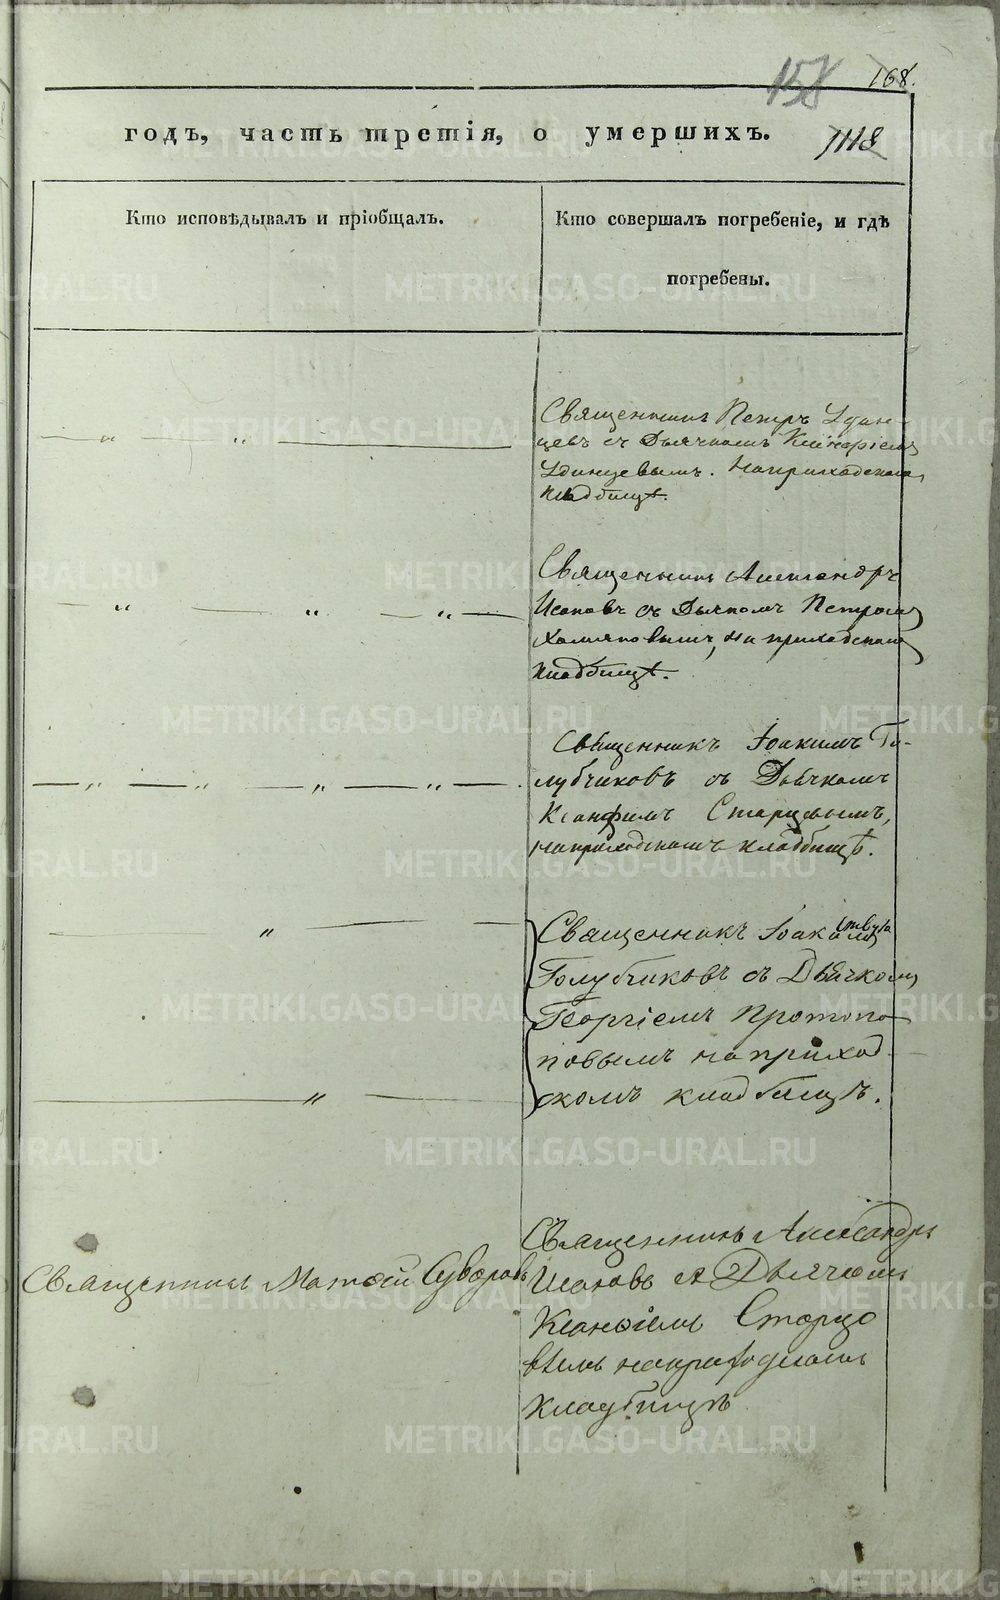 158
168.
1118
годъ, часть третія, о умершихъ.
Кто исповѣдывалъ и пріобщалъ.
Кто совершалъ погребеніе, и гдѣ
погребены.
Священникъ Петръ Удин-
цевъ съ Дьячкомъ
Удинцевымъ. На приходскомъ
кладбищѣ.
Священникъ Александръ
Исаковъ съ Дьячкомъ Петромъ
Хомяковымъ, на приходскомъ
кладбищѣ.
Священникъ Іоакимъ Го-
лубчиковъ съ Дьячкомъ
Ксанфіемъ Старцовымъ,
на приходскомъ кладбищѣ.
Священникъ Іоакимъ
Голубчиковъ съ Дьячкомъ
Георгіемъ Протопо-
повымъ на приход-
скомъ кладбищѣ.
Священникъ Матѳей Суворовъ
Священникъ Александръ
Исаковъ съ Дьячкомъ
Ксанѳіемъ Старцо
вымъ на приходскомъ
кладбищѣ
METRIKI.GASO-URAL.RU